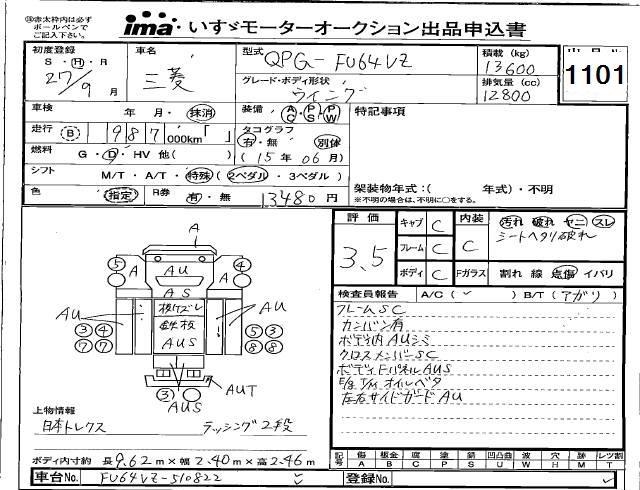 ㊟赤太枠内は必ず
ボールペンで
ご記入下さい。
ima いすゞモーターオークション出品申込書
初度登録
S・H・R
27/9 月
車名
三菱
型式
QPG-FU64VZ
グレード・ボディ形状
ウイング
積載 (kg)
13600
排気量 (cc)
12800
1101
車検 年・月・抹消
装備 AC PS PW
特記事項
走行 B 987 000km「 」
タコグラフ
有・無 別体
(15年06月)
燃料 G・D・HV 他( )
シフト M/T・A/T・特殊 (2ペダル・3ペダル)
色 指定 R券 有・無 13480 円
架装物年式:( 年式)・不明
※不明の場合は、不明に○をする。
評価
3.5
キャブ C
フレーム C
ボディ C
内装
C
Fガラス
汚れ 破れ ヤニ スレ
シートヘタリ破れ
割れ 線 点傷 イバリ
検査員報告 A/C( ✓ ) B/T(アガリ)
フレームSC
カンバン有
ボディ内AUシミ
クロスメンバーSC
ボディFパネルAUS
E/g T/m オイルベタ
左右サイドガードAU
A
⑤ A AU A ⑥
AS
AU AU
板ケズレ
鉄板
AUS
③ ④ ⑦ ⑦
⑤ ③ ⑧ ⑧
③ AUT
AUS
上物情報
日本トレクス ラッシング2段
ボディ内寸約 長9.62m×幅2.40m×高2.46m
記号 傷 A 板金 B 腐 C 塗 P 錆 S 凹凸曲 U 波 W 穴 H 跡 M レツ割 T
車台No. FU64VZ-510822
登録No.